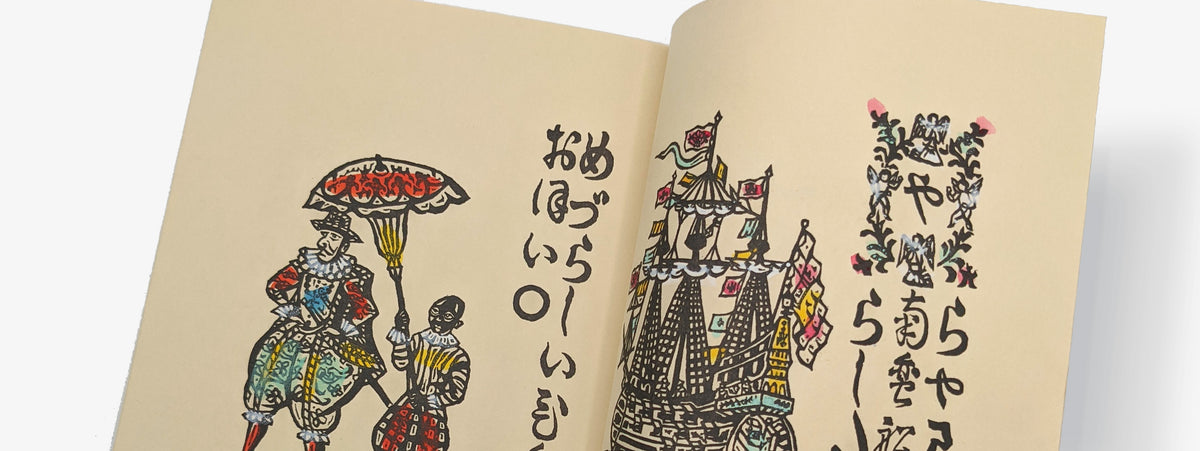 や
らや
南蛮船
らし
めづらしい
おほい○